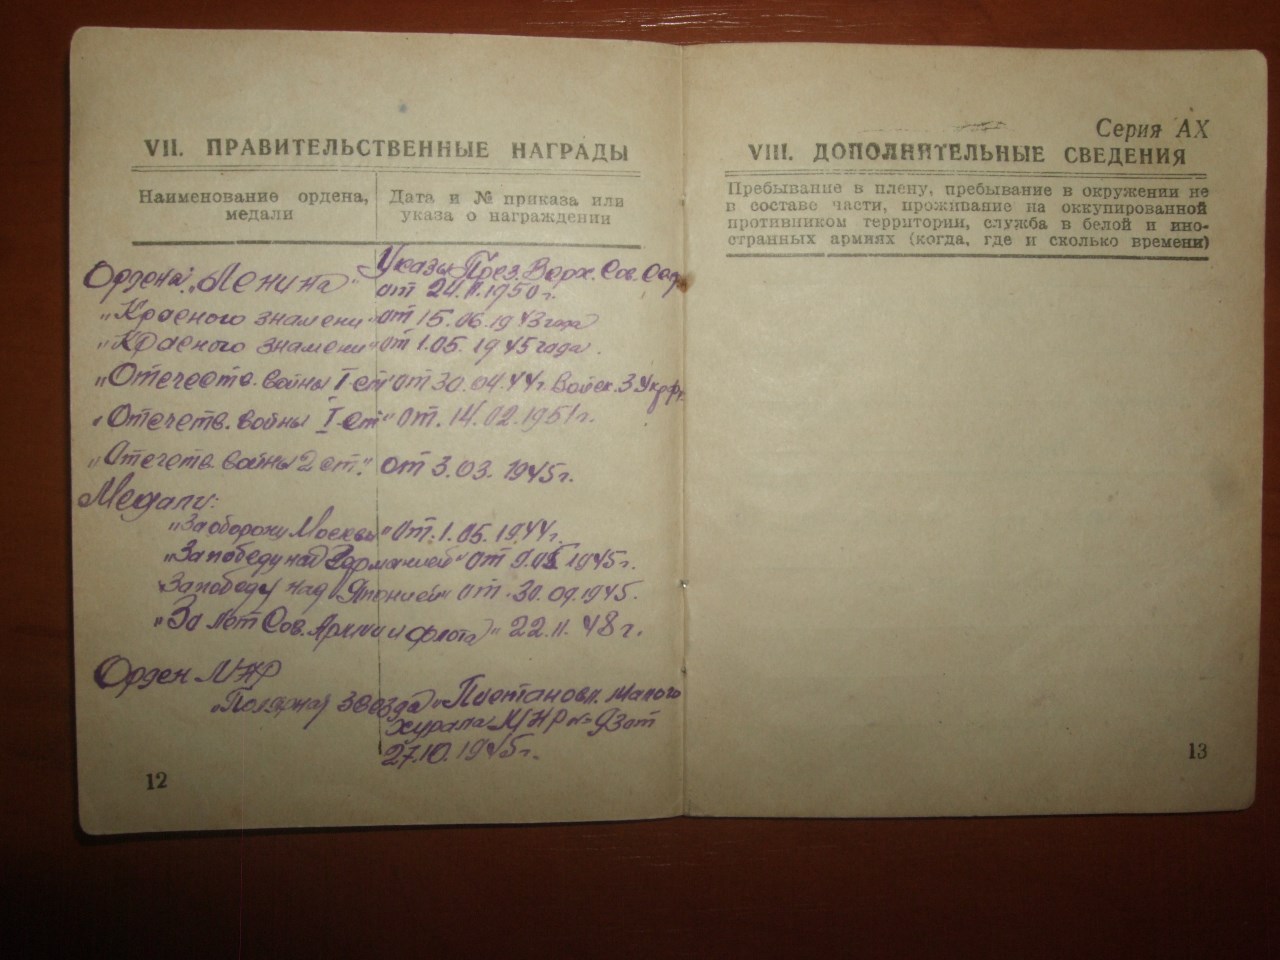 VII. ПРАВИТЕЛЬСТВЕННЫЕ НАГРАДЫ
Наименование ордена, медали
Дата и № приказа или указа о награждении
Ордена: „Ленина“ Указы През. Верх. Сов. ССР
от 24.11.1950г.
„Красного знамени“ от 15.06.1943 года
„Красного знамени“ от 1.05.1945 года.
„Отечеств. войны I ст“ от 30.04.44г. Войск. 3 Укр.фр.
„Отечетв. войны I ст“ от. 14.02.1951г.
„Отечетв. войны 2 ст.“ от 3.03.1945г.
Медали:
„За оборону Москвы“ от. 1.05.1944г.
„За победу над Германией“ от 9.05 1945г.
За победу над Японией“ от. 30.09.1945.
„За лет Сов. Армии и флота“ 22.11.48г.
Орден МНР
„Полярная звезда“ Постановл. Малого
Хурала МНР № 93 от
27.10.1945г.
12
Серия АХ
VIII. ДОПОЛНИТЕЛЬНЫЕ СВЕДЕНИЯ
Пребывание в плену, пребывание в окружении не
в составе части, проживание на оккупированной
противником территории, служба в белой и ино-
странных армиях (когда, где и сколько времени)
13